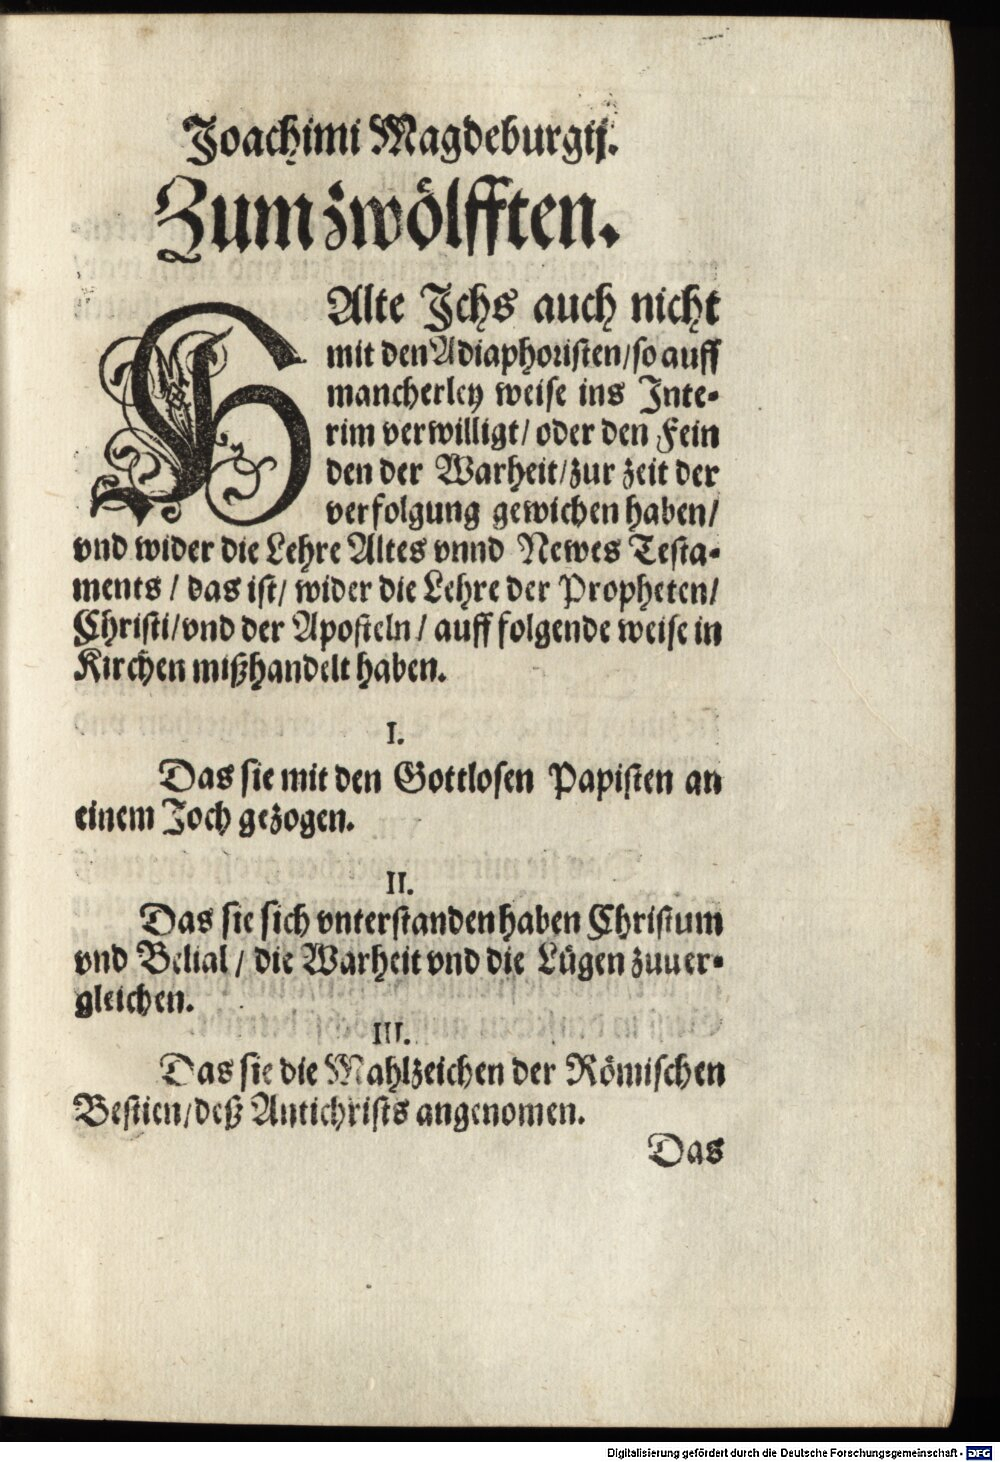 Joachimi Magdeburgij.
Zum zwölfften.
HAlte Ichs auch nicht
mit den Adiaphoristen/so auff
mancherley weise ins Inte-
rim verwilligt/ oder den Fein
den der Warheit/zur zeit der
verfolgung gewichen haben/
vnd wider die Lehre Altes vnnd Newes Testa-
ments / das ist/ wider die Lehre der Propheten/
Christi/vnd der Aposteln / auff folgende weise in
Kirchen mißhandelt haben.
I.
Das sie mit den Gottlosen Papisten an
einem Joch gezogen.
II.
Das sie sich vnterstanden haben Christum
vnd Belial / die Warheit vnd die Lügen zuuer-
gleichen.
III.
Das sie die Mahlzeichen der Römischen
Bestien/deß Antichrists angenomen.
Das
Digitalisierung gefördert durch die Deutsche Forschungsgemeinschaft - DFG